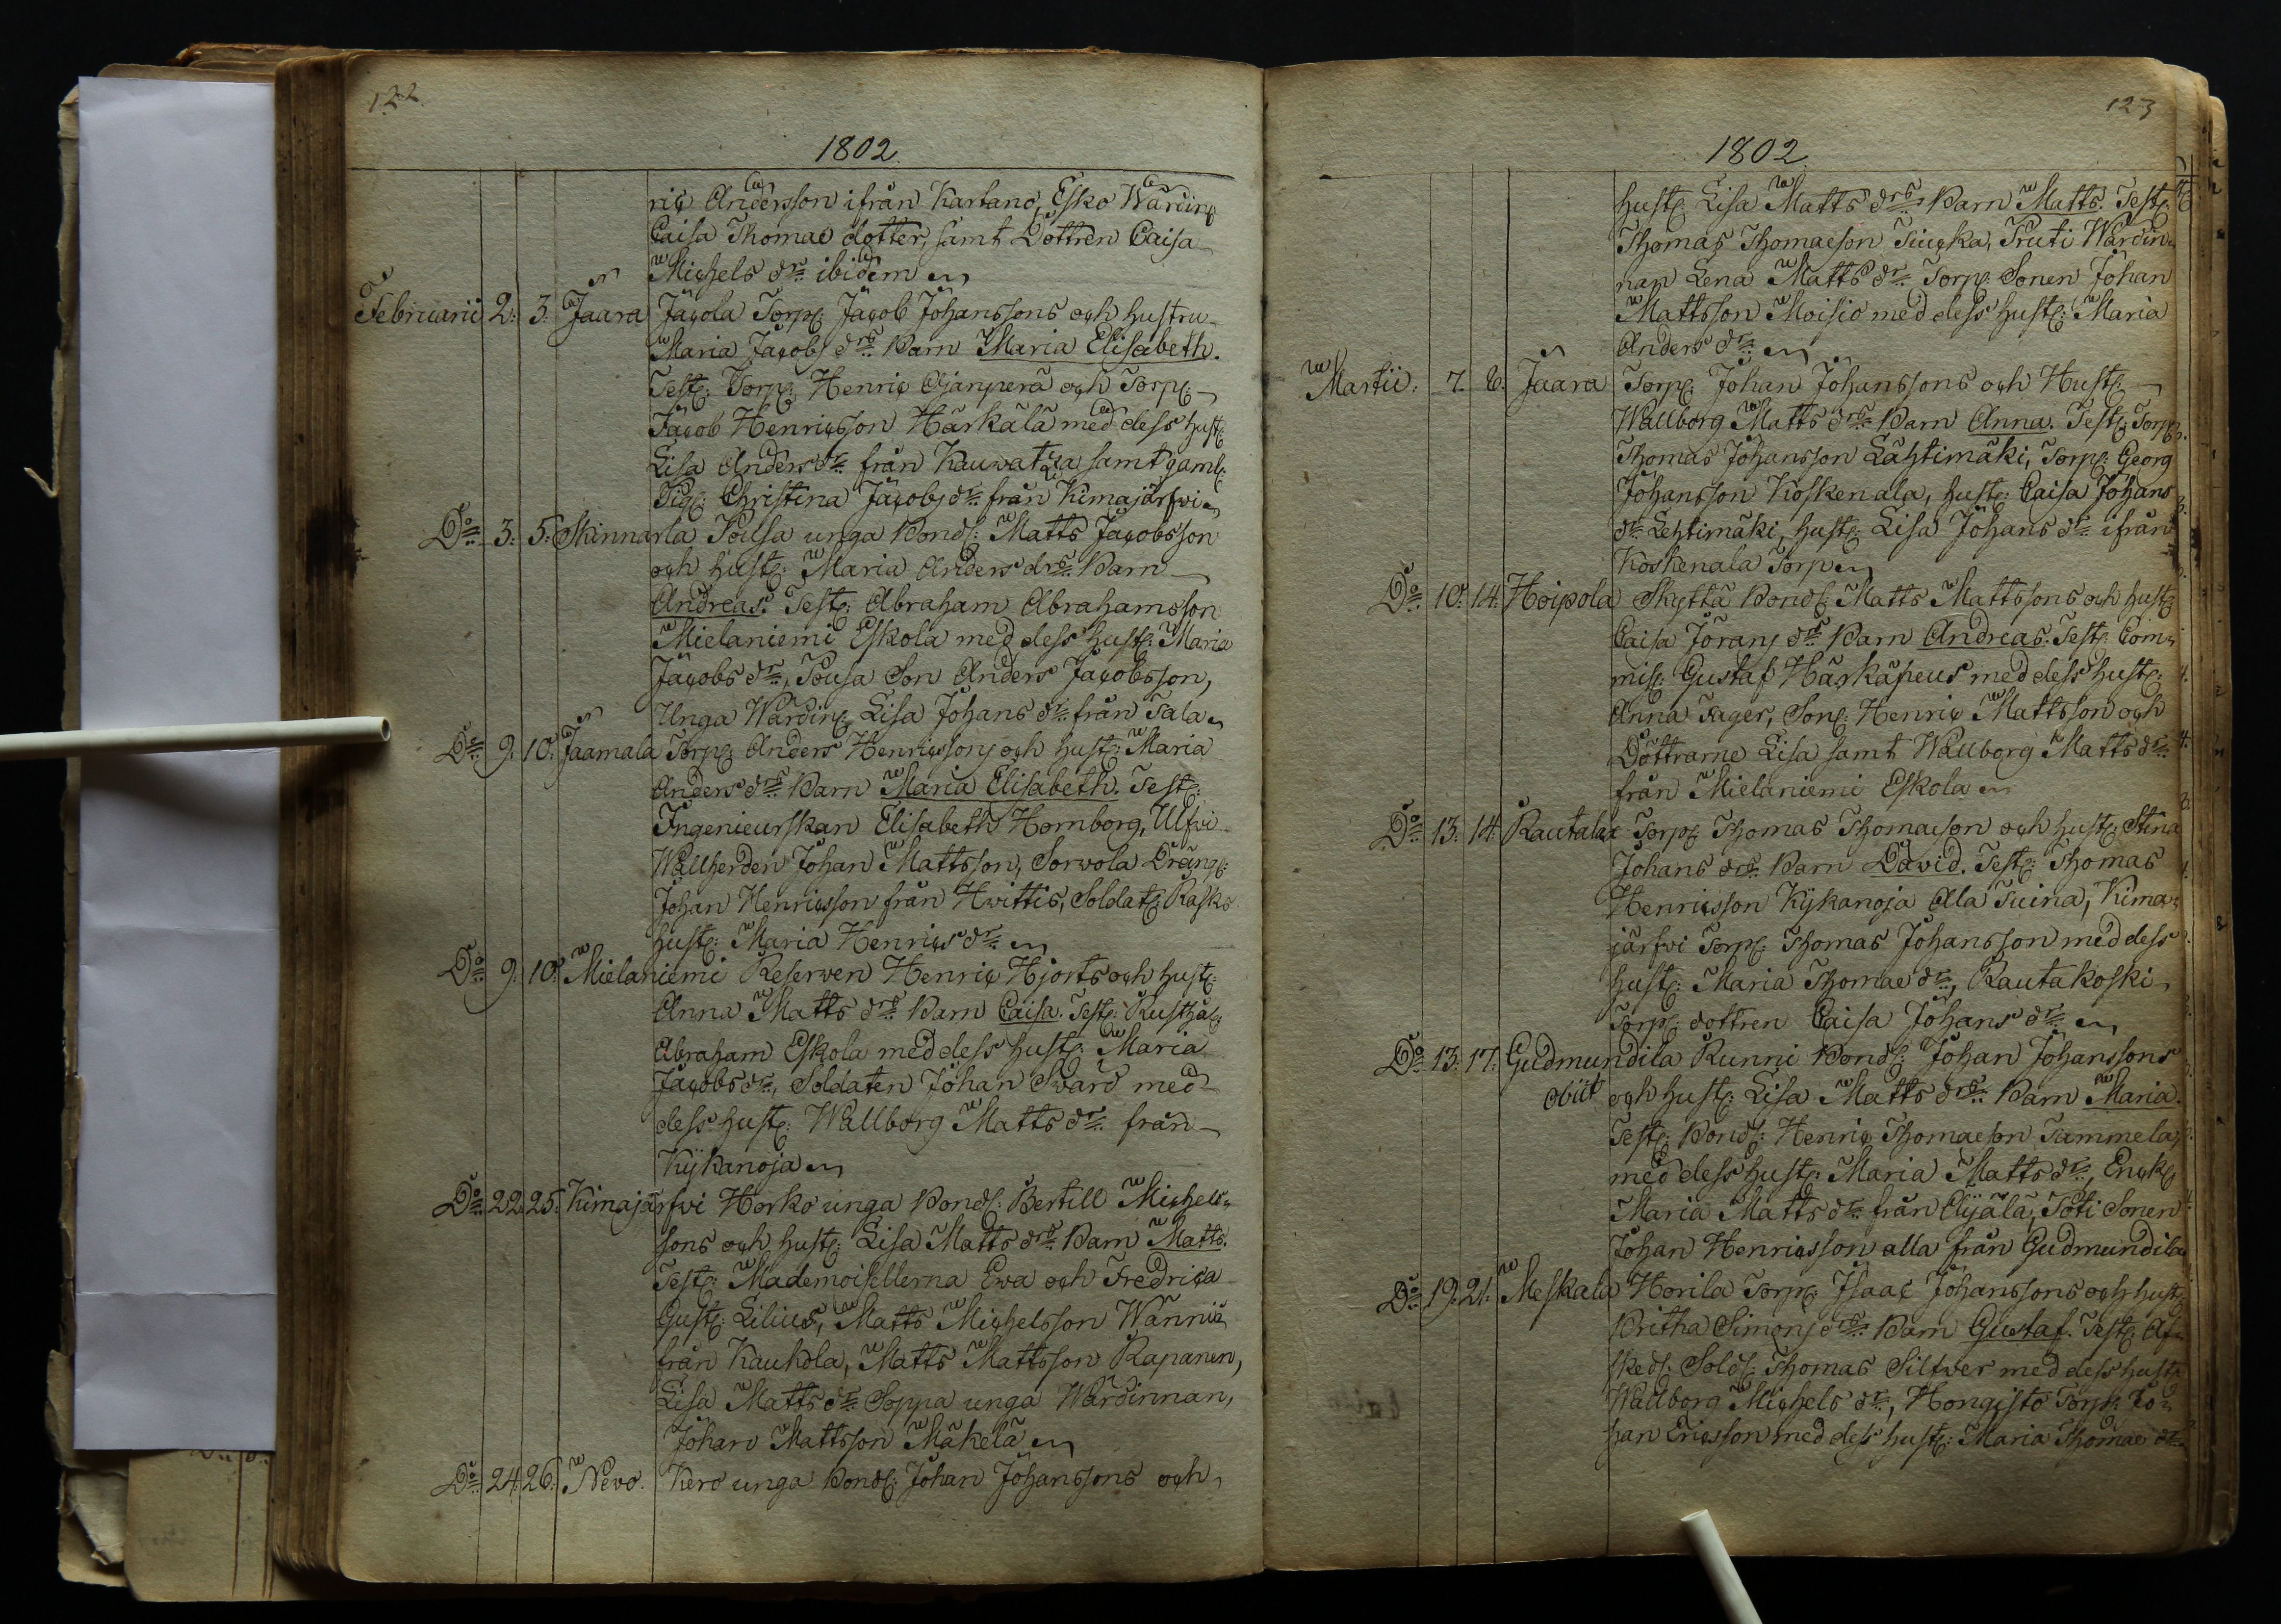 122.
1802.
ric Andersson ifrån Kartano, Esko Wärdin:
Caisa Thomae dotter, samt Dottren Caisa
Michels dr: ibidem
Februarii 2. 3. Jaara Jacola Torp: Jacob Johanssons och hustru
Maria Jacobs drs: Barn Maria Elisabeth.
Test: Torp: Henric Ajanperä och Torp:
Jacob Henricsson Härkälä med dess hust:
Lisa Anders dr: från Kauvatza samt gaml:
Pig: Christina Jacobs dr: från Kimajärfvi
Do: 3. 5. Skinnarla Pousa unga Bond: Matts Jacobsson
och hust: Maria Anders drs: Barn
Andreas. Test: Abraham Abrahamsson
Mielaniemi Eskola med dess hust: Maria
Jacobs dr:, Pousa Son Anders Jacobsson,
Unga Wärdin: Lisa Johans dr: från Tala
Do: 9. 10. Jaamala Torp: Anders Henricssons och hust: Maria
Anders drs: Barn Maria Elisabeth. Test:
Ingenieurskan Elisabeth Hornborg, Ulfvi
Wallherden Johan Mattsson, Sorvola Dräng:
Johan Henricsson från Hvittis, Soldat: Rasks
hust: Maria Henrics dr:
Do: 9. 10. Mielaniemi Reserven Henric Hjorts och hust:
Anna Matts drs: Barn Caisa. Test: Rusthål:
Abraham Eskola med dess hust: Maria
Jacobs dr:, Soldaten Johan Svärd med
dess hust: Wallborg Matts dr: från
Kykanoja
Do: 22. 25. Kimajärfvi Horko unga Bond: Bertill Michels-
sons och hust: Lisa Matts drs: Barn Matts.
Test: Mademoisellerna Ewa och Fredrica
Gust: Lilius, Matts Michelsson Wännië
från Kaukola, Matts Mattsson Rapanen,
Lisa Matts dr: Soppa unga Wärdinnan,
Johan Mattsson Mäkelä
Do: 24. 26. Nevo. Kero unga Bond: Johan Johanssons och
123
1802.
hust: Lisa Matts drs: Barn Matts. Test:
Thomas Thomaeson Tiucka, Pruti Wärdin-
nan Lena Matts dr: Torp: Sonen Johan
Mattsson Moisio med dess hust: Maria
Anders dr:
Martii. 7. 8. Jaara Torp: Johan Johanssons och Hust:
Wallborg Matts drs: Barn Anna. Test: Torp:
Thomas Johansson Lähtimäki, Torp: Georg
Johansson Koskenala, hust: Caisa Johans
dr: Lehtimäki, hust: Lisa Johans dr: ifrån
Koskenala Torp
Do: 10. 14. Hoipola Skyttä Bond: Matts Mattssons och hust:
Caisa Jörans drs: Barn Andreas. Test: Com-
mis: Gustaf Härkäpeus med dess hust:
Anna Fager, Son: Henric Mattsson och
Döttrarne Lisa samt Wallborg Matts dr:
från Mielaniemi Eskola
Do: 13. 14. Rautala Torp: Thomas Thomaeson och hust: Stina
Johans drs: Barn David. Test: Thomas
Henricsson Kykanoja Ala Tuina, Kima-
järfvi Torp: Thomas Johansson med dess
hust: Maria Thomae dr:, Rautakoski
Torp: dottren Caisa Johans dr:
Do: 13. 17. Gudmundila Runni Bond: Johan Johanssons
obiit och hust: Lisa Matts drs: Barn Maria.
Test: Bond: Henric Thomaeson Tammela,
med dess hust: Maria Matts dr:, Enck:
Maria Matts dr: från Äijälä, Töti Sonen
Johan Henricsson alla från Gudmundila
Do: 19. 21. Meskala Honila Torp: Isaac Johanssons och hust:
Britha Simons drs: Barn Gustaf. Test: Af-
sked: Sold: Thomas Silfver med dess hust:
Wallborg Michels dr:, Hongisto Torp: Jo-
han Ericsson med dess hust: Maria Thomae dr: